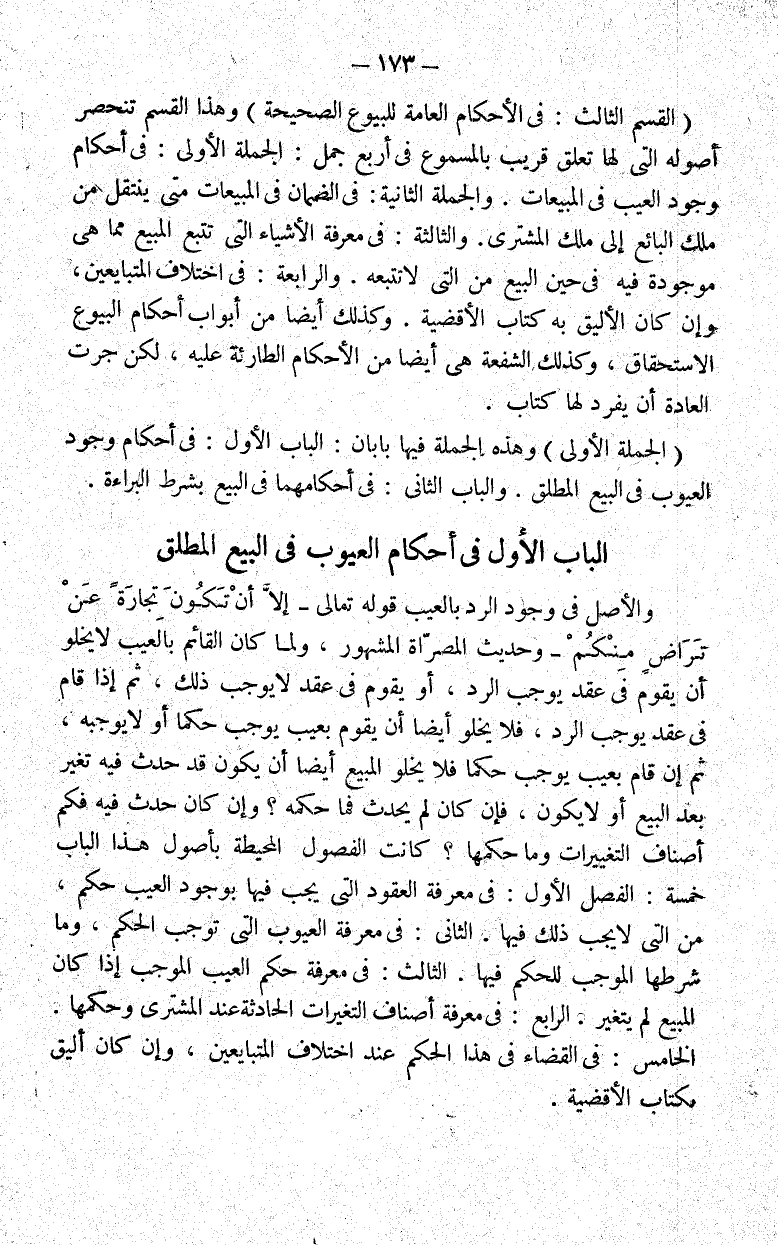 — ١٧٣ —
( القسم الثالث : فى الأحكام العامة للبيوع الصحيحة ) وهذا القسم تنحصر
أصوله التى لها تعلق قريب بالمسموع فى أربع جمل : الجملة الأولى : فى أحكام
وجود العيب فى المبيعات . والجملة الثانية : فى الضمان فى المبيعات متى ينتقل من
ملك البائع إلى ملك المشترى . والثالثة : فى معرفة الأشياء التى تتبع المبيع مما هى
موجودة فيه فى حين البيع من التى لاتتبعه . والرابعة : فى اختلاف المتبايعين ،
وإن كان الأليق به كتاب الأقضية . وكذلك أيضا من أبواب أحكام البيوع
الاستحقاق ، وكذلك الشفعة هى أيضا من الأحكام الطارئة عليه ، لكن جرت
العادة أن يفرد لها كتاب .
( الجملة الأولى ) وهذه الجملة فيها بابان : الباب الأول : فى أحكام وجود
العيوب فى البيع المطلق . والباب الثانى : فى أحكامهما فى البيع بشرط البراءة .
الباب الأول فى أحكام العيوب فى البيع المطلق
والأصل فى وجود الرد بالعيب قوله تعالى ــ إلاَّ أنْ تَكُونَ تِجارَةً عَنْ
تَرَاضٍ مِنْكُمْ ــ وحديث المصرّاة المشهور ، ولمـا كان القائم بالعيب لايخلو
أن يقوم فى عقد يوجب الرد ، أو يقوم فى عقد لايوجب ذلك ، ثم إذا قام
فى عقد يوجب الرد ، فلا يخلو أيضا أن يقوم بعيب يوجب حكما أو لايوجبه ،
ثم إن قام بعيب يوجب حكما فلا يخلو المبيع أيضا أن يكون قد حدث فيه تغير
بعد البيع أو لايكون ، فإن كان لم يحدث فما حكمه ؟ وإن كان حدث فيه فكم
أصناف التغييرات وما حكمها ؟ كانت الفصول المحيطة بأصول هـذا الباب
خمسة : الفصل الأول : فى معرفة العقود التى يجب فيها بوجود العيب حكم ،
من التى لايجب ذلك فيها . الثانى : فى معرفة العيوب التى توجب الحكم ، وما
شرطها الموجب للحكم فيها . الثالث : فى معرفة حكم العيب الموجب إذا كان
المبيع لم يتغير . الرابع : فى معرفة أصناف التغيرات الحادثة عند المشترى وحكمها .
الخامس : فى القضاء فى هذا الحكم عند اختلاف المتبايعين ، وإن كان أليق
بكتاب الأقضية .